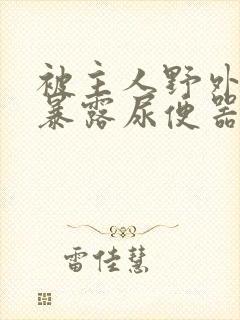 被主人野外
暴露尿便器
雷佳慧